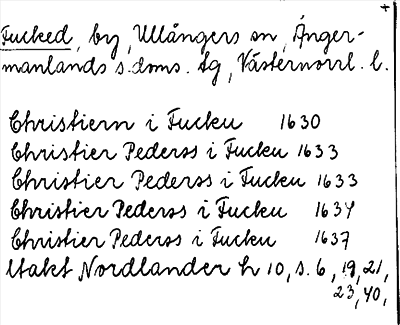 Fucked, by, Ullångers sn, Ånger-
manlands s.doms. tg, Västernorrl. l.
Christiern i Fucku 1630
Christier Pederss i Fucku 1633
Christier Pederss i Fucku 1633
Christier Pederss i Fucku 1634
Christier Pederss i Fucku 1637
Utakt Nordlander h 10, s. 6, 19, 21,
23, 40,